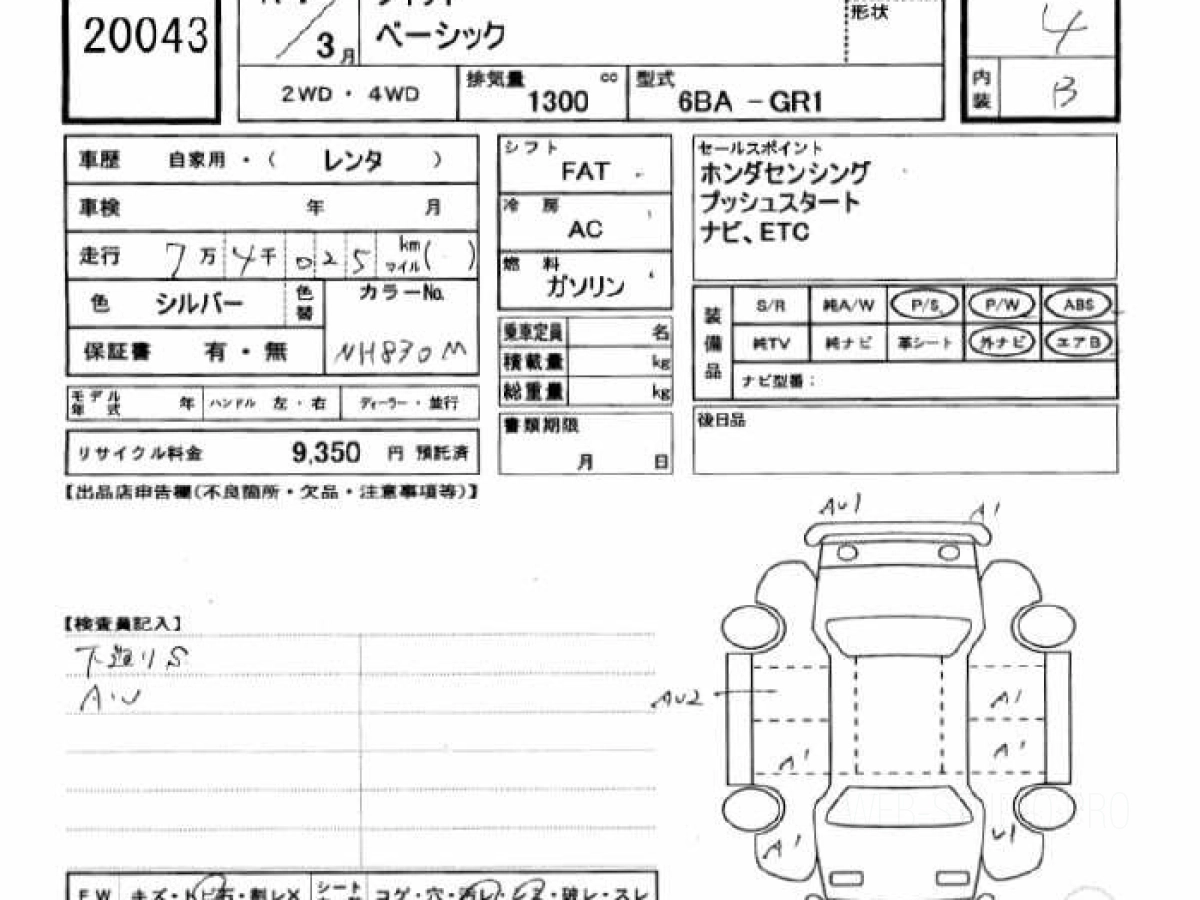 20043
3月
ベーシック
形状
4
2WD・4WD
排気量 cc
1300
型式
6BA -GR1
内装
B
車歴 自家用・( レンタ )
車検 年 月
走行 7万4千025km マイル( )
色 シルバー 色替
カラーNo.
NH830M
保証書 有・無
モデル年式 年 ハンドル 左・右 ディーラー・並行
リサイクル料金 9,350 円 預託済
シフト
FAT
冷房
AC
燃料
ガソリン
乗車定員 名
積載量 kg
総重量 kg
書類期限
月 日
セールスポイント
ホンダセンシング
プッシュスタート
ナビ、ETC
装備品
S/R 純A/W P/S P/W ABS
純TV 純ナビ 革シート 外ナビ エアB
ナビ型番:
後日品
【出品店申告欄(不良箇所・欠品・注意事項等)】
【検査員記入】
下廻りS
A・U
AU1
A1
AU2
A1
A1
A1
A1
U1
FW キズ・トビ石・割レX シート コゲ・穴・汚レ・シミ・破レ・スレ